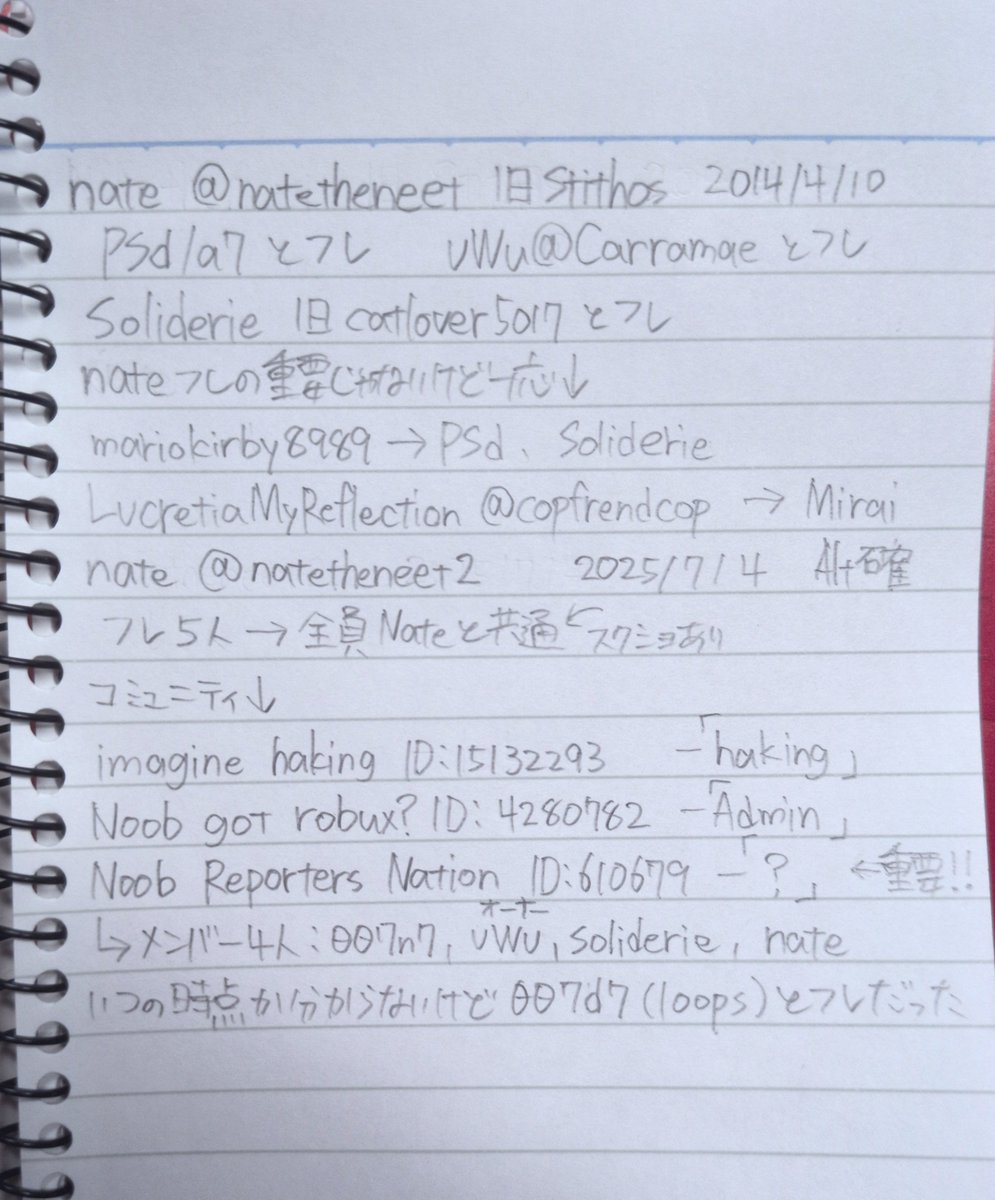 nate @natetheneet 旧Stithos 2014/4/10
PSd/a7とフレ uWu@Carramaeとフレ
Soliderie 旧catlover5017とフレ
nateフレの重要じゃないけど一応↓
mariokirby8989→PSd、Soliderie
LucretiaMyReflection @copfrendcop → Mirai
nate @natetheneet2 2025/7/4 Alt確
フレ5人→全員Nateと共通 スクショあり
コミュニティ↓
imagine haking ID:15132293 -「haking」
Noob got robux? ID: 4280782 -「Admin」
Noob Reporters Nation ID:610679 -「?」 ←重要!!
オーナー
↳メンバー4人:007n7, uWu, soliderie, nate
いつの時点か分からないけど007d7(loops)とフレだった